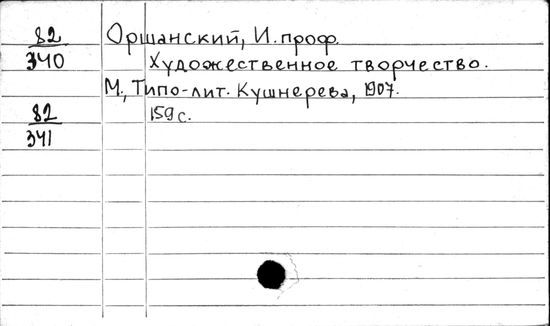 82 Оршанский, И. проф.
340 Художественное творчество.
М., Типо-лит. Кушнерева, 1907.
82 159 с.
341